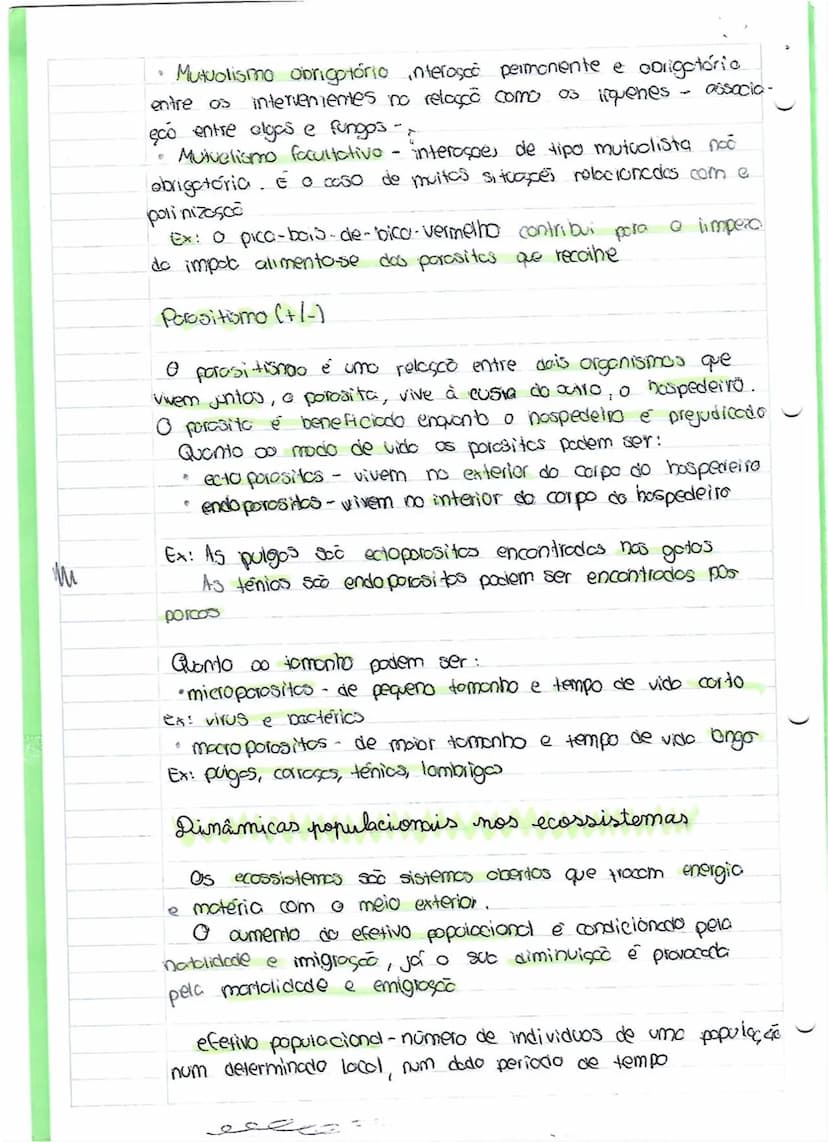 • Mutualismo obrigatório interação permanente e obrigatória
entre os intervenientes na relação como os líquenes - associa-
ção entre algas e fungos -,
• Mutualismo facultativo - interações de tipo mutualista não
obrigatória. É o caso de muitas situações relacionadas com a
polinização
Ex: O pica-bois-de-bico-vermelho contribui para a limpeza
do impot alimenta-se das parasitas que recolhe
Parasitismo (+/-)
O parasitismo é uma relação entre dois organismos que
vivem juntos, o parasita, vive à custa do outro, o hospedeiro.
O parasita é beneficiado enquanto o hospedeiro é prejudicado
Quanto ao modo de vida os parasitas podem ser:
• ectoparasitas - vivem no exterior do corpo do hospedeiro
• endoparasitas - vivem no interior do corpo do hospedeiro
Ex: As pulgas são ectoparasitas encontradas nos gatos
As ténias são endoparasitas podem ser encontradas nos
porcos
Quanto ao tamanho podem ser:
• microparasitas - de pequeno tamanho e tempo de vida curto
ex: virus e bactérias
• macroparasitas - de maior tamanho e tempo de vida longo
Ex: pulgas, carraças, ténias, lombrigas
Dinâmicas populacionais nos ecossistemas
Os ecossistemas são sistemas abertos que trocam energia
e matéria com o meio exterior.
O aumento do efetivo populacional é condicionado pela
natalidade e imigração, já a sua diminuição é provocada
pela mortalidade e emigração
efetivo populacional - número de individuos de uma população
num determinado local, num dado período de tempo